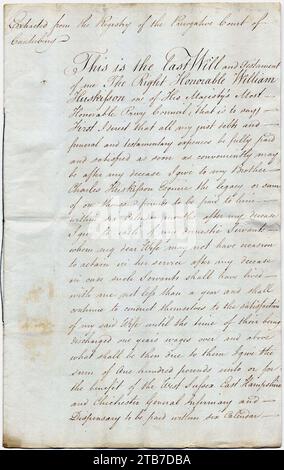 Extracted from the Registry of the Prerogative Court of
Canterbury
This is the Last Will and Testament
of me The Right Honorable William
Huskisson one of His Majesty's Most
Honorable Privy Council, that is to say,
First I direct that all my just debts and
funeral and testamentary expences be fully paid
and satisfied as soon as conveniently may
be after my decease I give to my Brother
Charles Huskisson Esquire the legacy or sum
of one thousand pounds to be paid to him
within six Calendar months after my decease
I give to each of my domestic Servants
whom my dear Wife may not have occasion
to retain in her service after my decease
in case such Servants shall have lived
with me not less than a year and shall
continue to conduct themselves to the satisfaction
of my said Wife until the time of their being
discharged one years wages over and above
what shall be then due to them I give the
sum of One hundred pounds unto or for
the benefit of the West Sussex East Hampshire
and Chichester General Infirmary and
Dispensary to be paid within six Calendar
alamy
Image ID: 2TB7DBA
www.alamy.com